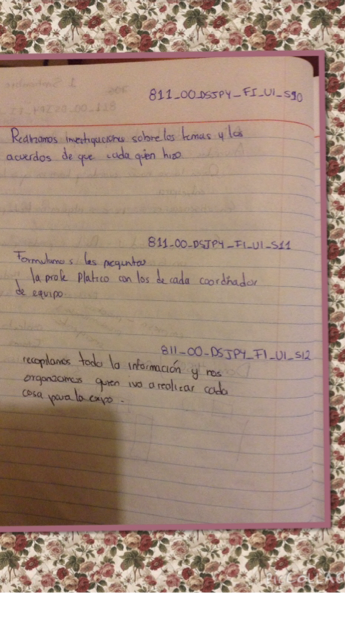 811_00_DSJPY_FI_UI_S10
Realizamos investigaciones sobre los temas y los
acuerdos de que cada quien hizo
811_00_DSJPY_FI_UI_S11
Formulamos las preguntas
la profe Platico con los de cada coordinador
de equipo
811_00_DSJPY_FI_UI_S12
recopilamos toda la información y nos
organizamos quien iva a realizar cada
cosa para la expo.